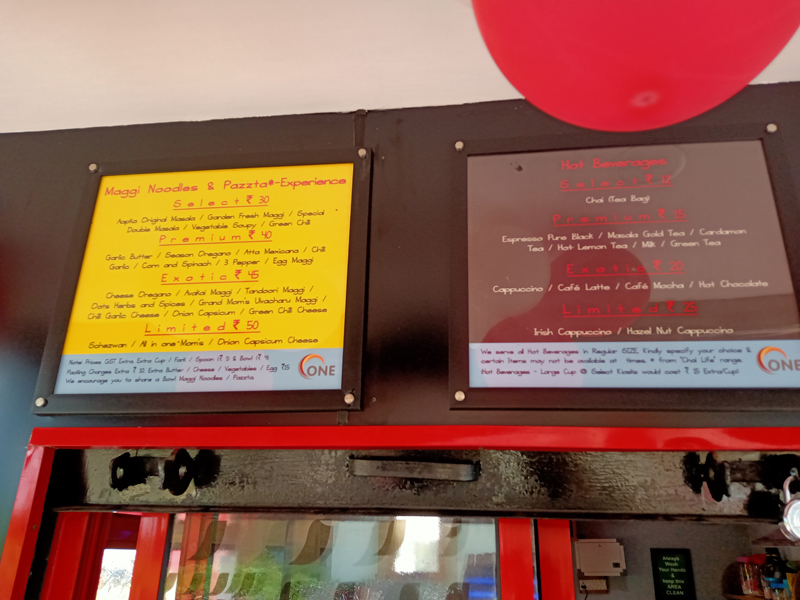 Maggi Noodles & Pazzta#-Experience
Select ₹ 30
Aapka Original Masala / Garden Fresh Maggi / Special
Double Masala / Vegetable Soupy / Green Chili
Premium ₹ 40
Garlic Butter / Season Oregano / Atta Mexicana / Chili
Garlic / Corn and Spinach / 3 Pepper / Egg Maggi
Exotic ₹ 45
Cheese Oregano / Avakai Maggi / Tandoori Maggi /
Oats Herbs and Spices / Grand Mom's Uvacharu Maggi /
Chili Garlic Cheese / Onion Capsicum / Green Chili Cheese
Limited ₹ 50
Schezwan / All in one Mom's / Onion Capsicum Cheese
Note: Prices GST Extra, Extra Cup / Fork / Spoon ₹ 3 & Bowl ₹ 4
Packing Charges Extra ₹ 10, Extra Butter / Cheese / Vegetables / Egg ₹15
We encourage you to share a Bowl Maggi Noodles / Pazzta
ONE
Hot Beverages
Select ₹
Chai (Tea Bag)
Premium ₹ 15
Espresso Pure Black / Masala Gold Tea / Cardamon
Tea / Hot Lemon Tea / Milk / Green Tea
Exotic ₹ 20
Cappuccino / Café Latte / Café Mocha / Hot Chocolate
Limited ₹ 25
Irish Cappuccino / Hazel Nut Cappuccino
We serve all Hot Beverages in Regular SIZE. Kindly specify your choice &
certain items may not be available at times, # from 'Chai Life' range.
Hot Beverages - Large Cup @ Select Kiosks would cost ₹ 15 Extra/Cup!
ONE
Always
Wash
Your Hands
&
keep this
AREA
CLEAN